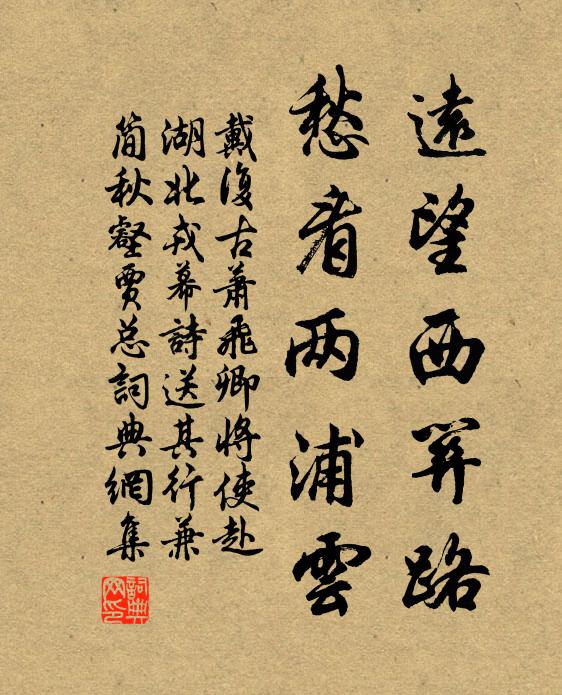 遠望西箳路
愁看两浦雲
戴復古蕭飛卿將使赴
湖北戎幕詩送其行兼
簡秋壑賈总詞典網集
詞典网印